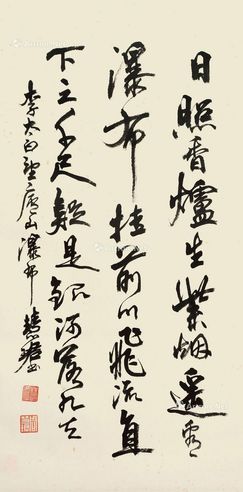 日照香爐生紫烟遥看
瀑布挂前川飞流直
下三千尺疑是銀河落九天
李太白望庐山瀑布